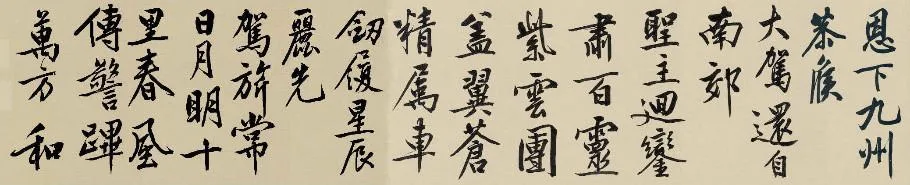 恩下九州
恭候
大駕還自
南郊
聖主迴鑾
肅百靈
紫雲團
蓋翼蒼
精属車
劒履星辰
麗先
駕旂常
日月明十
里春風
傳警蹕
萬方和